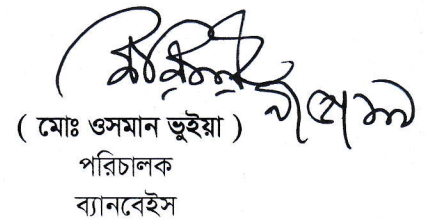 ( মোঃ ওসমান ভুইয়া )
পরিচালক
ব্যানবেইস